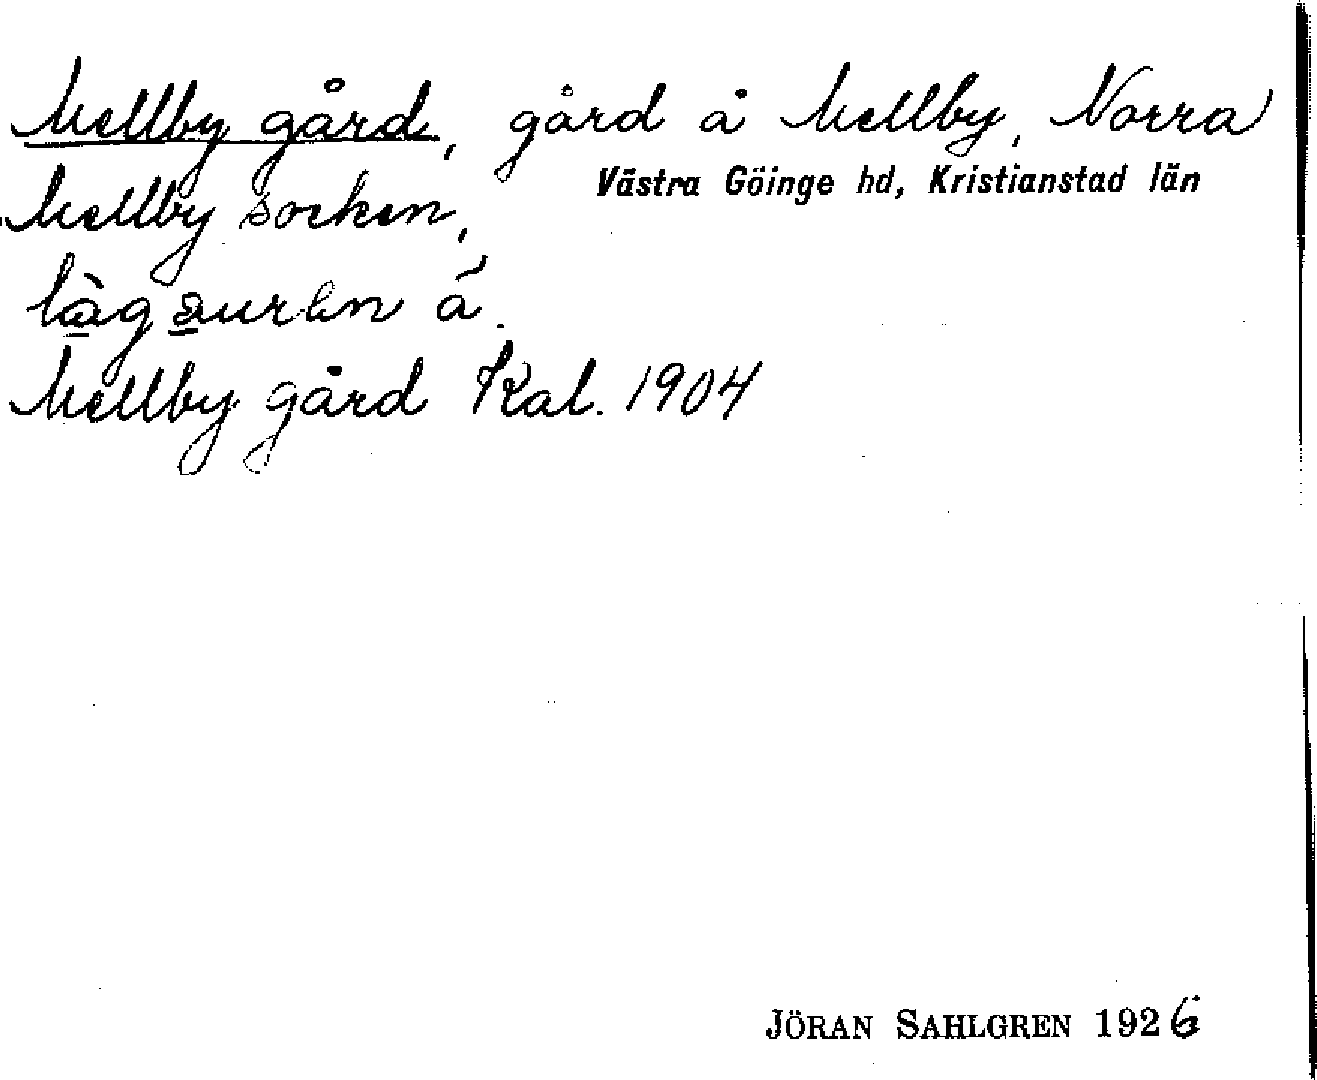 Mellby gård, gård å Mellby, Norra
Västra Göinge hd, Kristianstad län
Mellby socken,
å.
Mellby gård Kal. 1904
JÖRAN SAHLGREN 1926